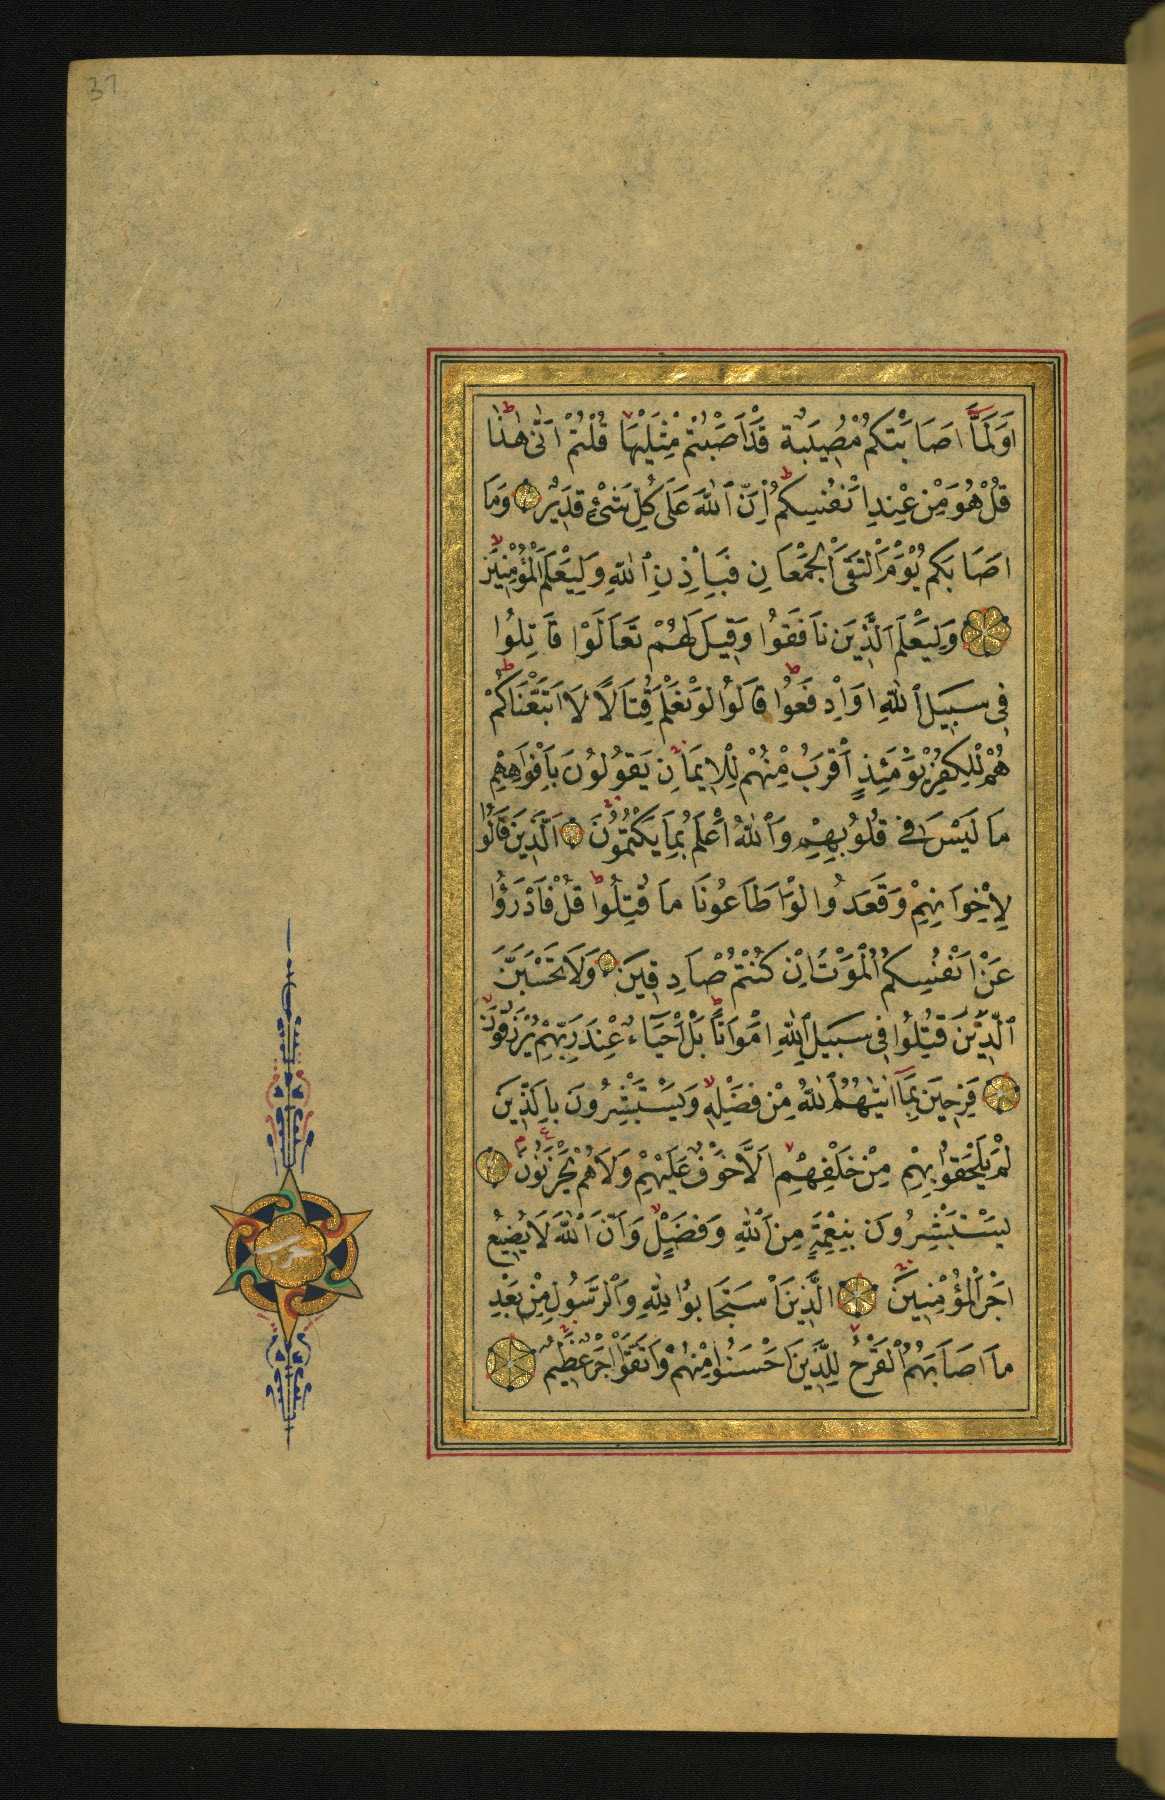 37
اَوَلَمَّٓا اَصَابَتْكُمْ مُصِيبَةٌ قَدْ اَصَبْتُمْ مِثْلَيْهَاۙ قُلْتُمْ اَنّٰى هٰذَاۜ
قُلْ هُوَ مِنْ عِنْدِ اَنْفُسِكُمْۜ اِنَّ ٱللّٰهَ عَلَى كُلِّ شَىْءٍ قَدِيرٌ وَمَٓا
اَصَابَكُمْ يَوْمَ الْتَقَى الْجَمْعَانِ فَبِاِذْنِ ٱللّٰهِ وَلِيَعْلَمَ الْمُؤْمِنِينَۙ
وَلِيَعْلَمَ الَّذِينَ نَافَقُوا وَقِيلَ لَهُمْ تَعَالَوْا قَاتِلُوا
فِى سَبِيلِ ٱللّٰهِ اَوِ ادْفَعُواۜ قَالُوا لَوْ نَعْلَمُ قِتَالًا لَا اتَّبَعْنَاكُمْۜ
هُمْ لِلْكُفْرِ يَوْمَئِذٍ اَقْرَبُ مِنْهُمْ لِلْاِيمَانِ يَقُولُونَ بِاَفْوَاهِهِمْ
مَا لَيْسَ فِى قُلُوبِهِمْ وَٱللّٰهُ اَعْلَمُ بِمَا يَكْتُمُونَ اَلَّذِينَ قَالُوا
لِاِخْوَانِهِمْ وَقَعَدُوا لَوْ اَطَاعُونَا مَا قُتِلُواۜ قُلْ فَادْرَؤُا
عَنْ اَنْفُسِكُمُ الْمَوْتَ اِنْ كُنْتُمْ صَادِقِينَ وَلَا تَحْسَبَنَّ
ٱلَّذِينَ قُتِلُوا فِى سَبِيلِ ٱللّٰهِ اَمْوَاتًاۜ بَلْ اَحْيَٓاءٌ عِنْدَ رَبِّهِمْ يُرْزَقُونَۙ
فَرِحِينَ بِمَٓا اٰتٰيهُمُ ٱللّٰهُ مِنْ فَضْلِهِۙ وَيَسْتَبْشِرُونَ بِالَّذِينَ
لَمْ يَلْحَقُوا بِهِمْ مِنْ خَلْفِهِمْۙ اَلَّا خَوْفٌ عَلَيْهِمْ وَلَا هُمْ يَحْزَنُونَ
يَسْتَبْشِرُونَ بِنِعْمَةٍ مِنَ ٱللّٰهِ وَفَضْلٍۙ وَاَنَّ ٱللّٰهَ لَا يُضِيعُ
اَجْرَ الْمُؤْمِنِينَ الَّذِينَ اسْتَجَابُوا لِلّٰهِ وَالرَّسُولِ مِنْ بَعْدِ
مَٓا اَصَابَهُمُ الْقَرْحُ لِلَّذِينَ اَحْسَنُوا مِنْهُمْ وَاتَّقَوْا اَجْرٌ عَظِيمٌ